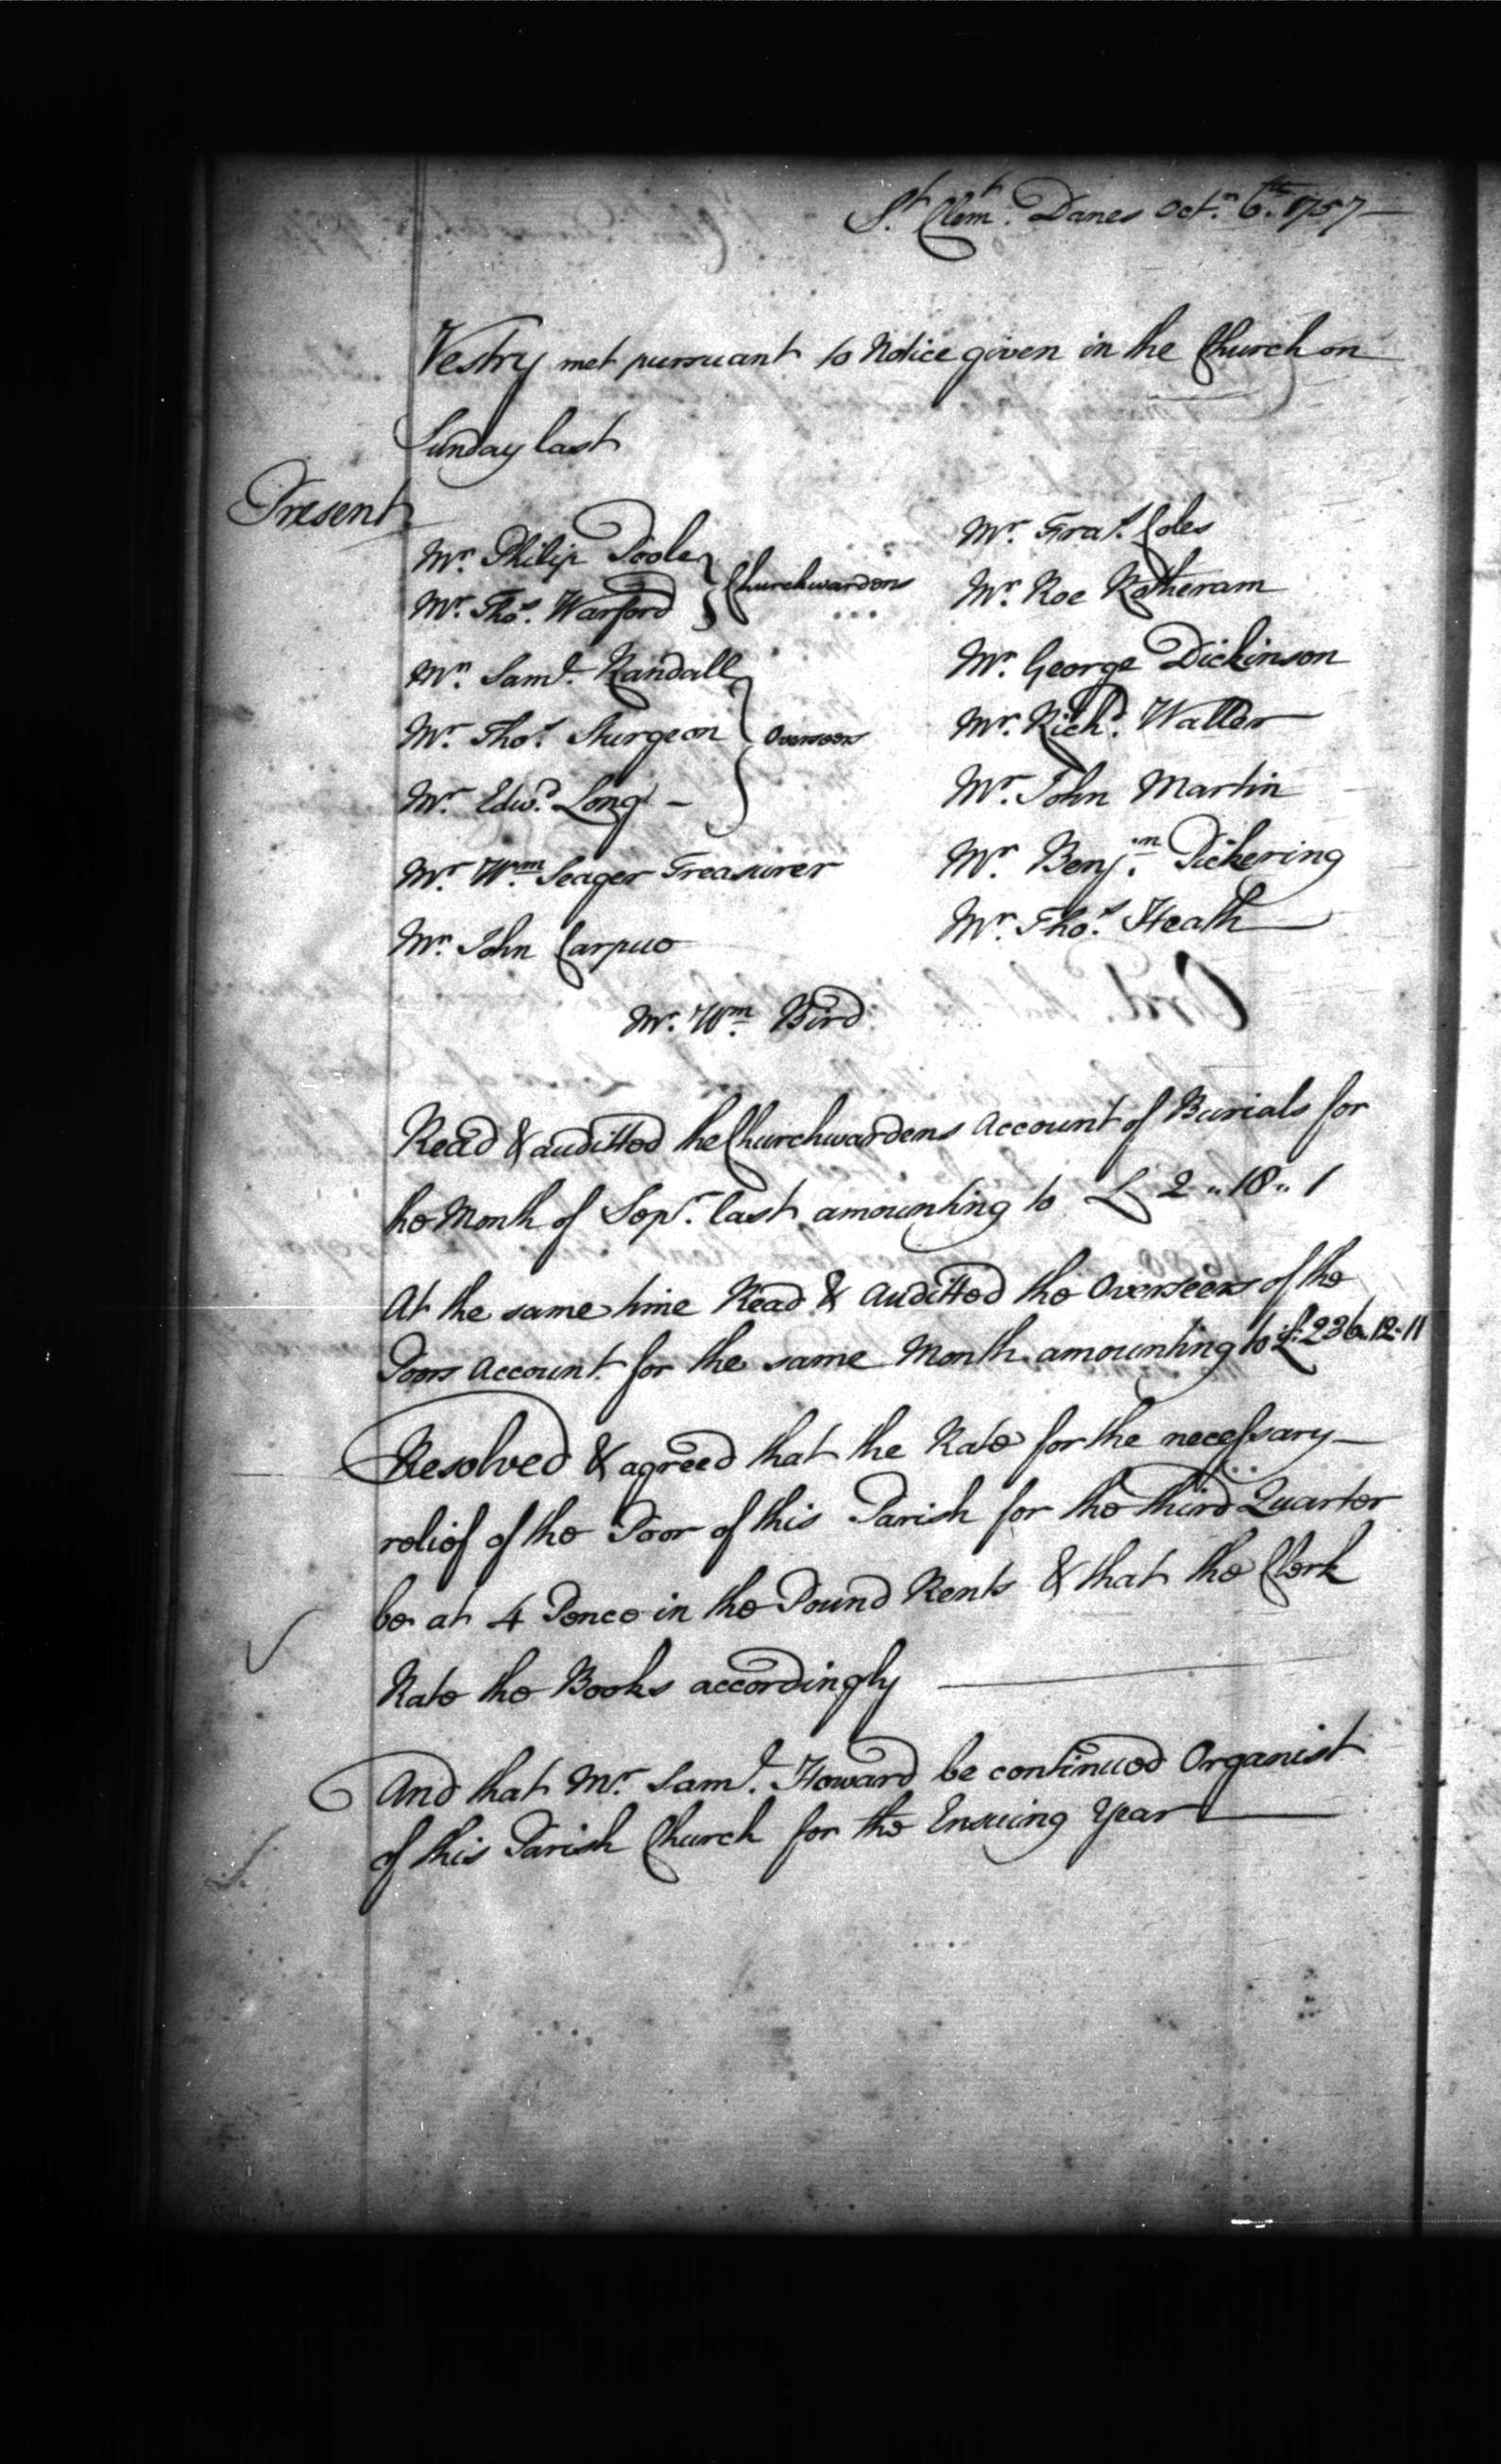 St. Clemt. Danes Octr. 6th. 1757
Vestry met pursuant to Notice given in the Church on
Sunday last
Present
Mr. Philip Poole
Mr. Thos. Warford
Churchwardens
Mr. Saml. Randall
Mr. Thos. Sturgeon
Mr. Edwd. Long
Overseers
Mr. Wm. Seager Treasurer
Mr. John Carpue
Mr. Fras. Coles
Mr. Roe Ratheram
Mr. George Dickinson
Mr. Richd. Waller
Mr. John Martin
Mr. Benjn. Pickering
Mr. Thos. Heath
Mr. Wm. Bird
Read & auditted the Churchwardens Account of Burials for
the Month of Sepr. last amounting to £ 2 " 18 " 1
At the same time Read & Auditted the Overseers of the
Poors Account for the same Month amounting to £ 236 " 12 " 11
Resolved & agreed that the Rate for the necessary
relief of the Poor of this Parish for the third Quarter
be at 4 Pence in the Pound Rents & that the Clerk
Rate the Books accordingly
And that Mr. Saml. Howard be continued Organist
of this Parish Church for the Ensuing Year